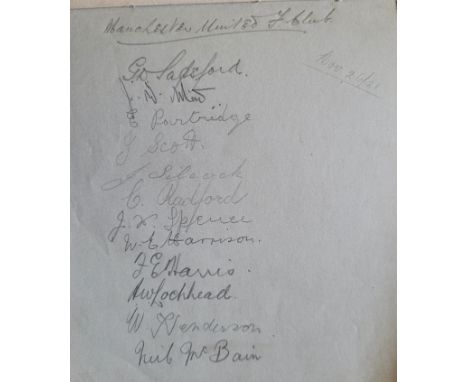 Manchester United F. Club.
Nov 26/21
G.D. Sapsford.
J. W. Mew
Partridge
J Scott.
J. Silcock
C. Radford
J. W. Spence
W. E. Harrison.
F E Harris.
A W Lochhead.
W Henderson
Neil Mc Bain